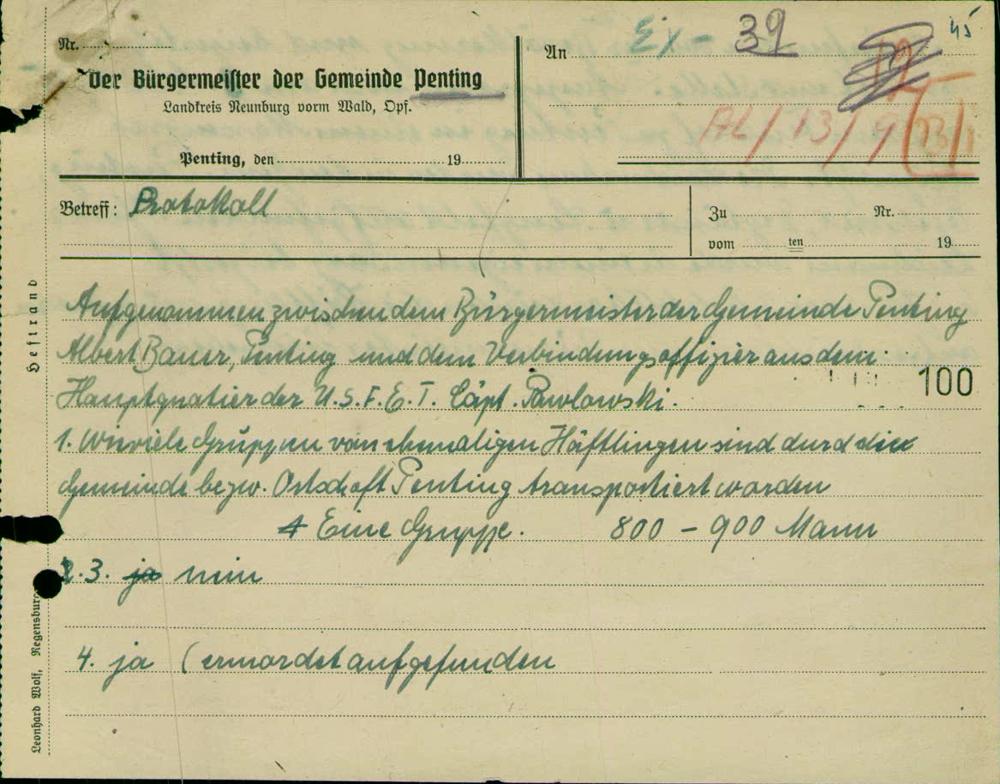 Nr.
Der Bürgermeister der Gemeinde Penting
Landkreis Neunburg vorm Wald, Opf.
Penting, den 19
An
Ex- 39
45
AL/13/9
Betreff: Protokoll
Zu Nr.
vom ten 19
Aufgenommen zwischen dem Bürgermeister der Gemeinde Penting
Albert Bauer, Penting und dem Verbindungsoffizier aus dem
100
Hauptquatier der U.S.F.E.T. Cäpt. Pawlowski.
1. Wieviele Gruppen von ehemaligen Häftlingen sind durch die
Gemeinde bezw. Ortschaft Penting transportiert worden
Eine Gruppe. 800 - 900 Mann
2.3. ja nein
4. ja (ermordet aufgefunden
Heftrand
Leonhard Wolf, Regensburg